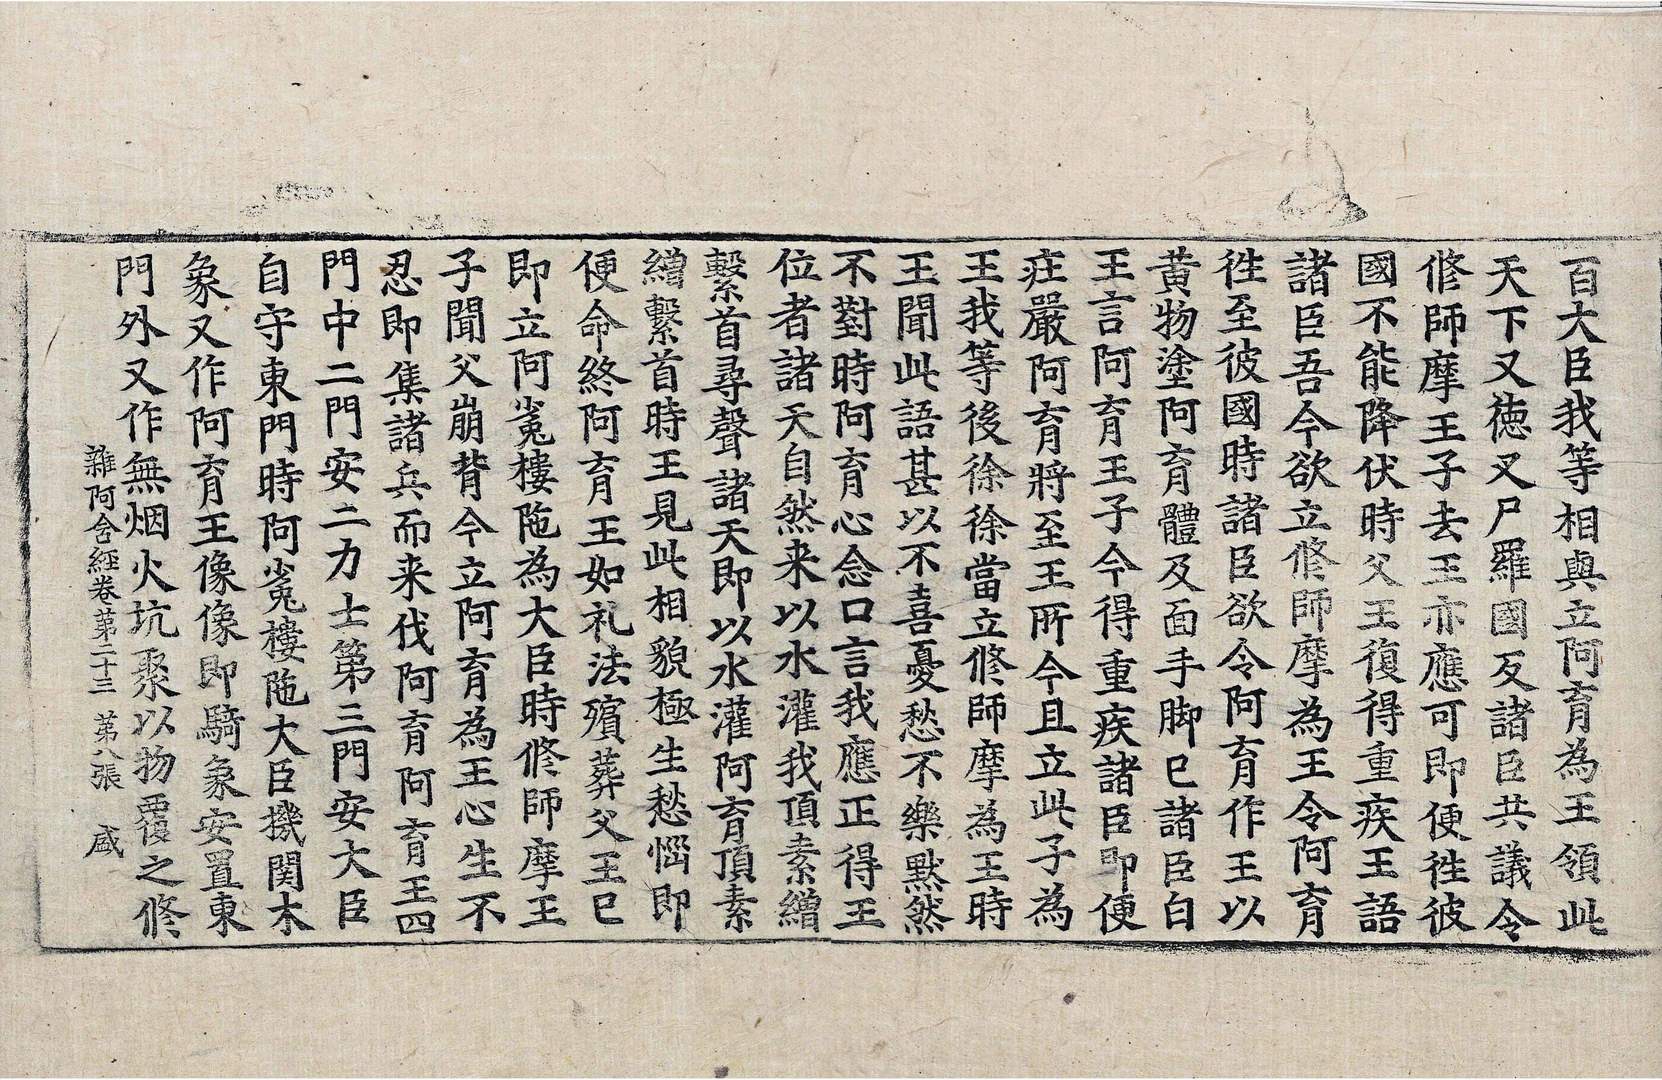 百大臣我等相與立阿育為王領此
天下又德叉尸羅國反諸臣共議令
修師摩王子去王亦應可即便徃彼
國不能降伏時父王復得重疾王語
諸臣吾今欲立修師摩為王令阿育
徃至彼國時諸臣欲令阿育作王以
黃物塗阿育體及面手脚已諸臣白
王言阿育王子今得重疾諸臣即便
莊嚴阿育將至王所今且立此子為
王我等後徐徐當立修師摩為王時
王聞此語甚以不喜憂愁不樂默然
不對時阿育心念口言我應正得王
位者諸天自然来以水灌我頂素繒
繫首尋聲諸天即以水灌阿育頂素
繒繫首時王見此相貌極生愁惱即
便命終阿育王如礼法殯葬父王已
即立阿㝹樓陁為大臣時修師摩王
子聞父崩背今立阿育為王心生不
忍即集諸兵而来伐阿育阿育王四
門中二門安二力士第三門安大臣
自守東門時阿㝹樓陁大臣機関木
象又作阿育王像像即騎象安置東
門外又作無烟火坑聚以物覆之修
雜阿含經卷第二十三 第八張 盛